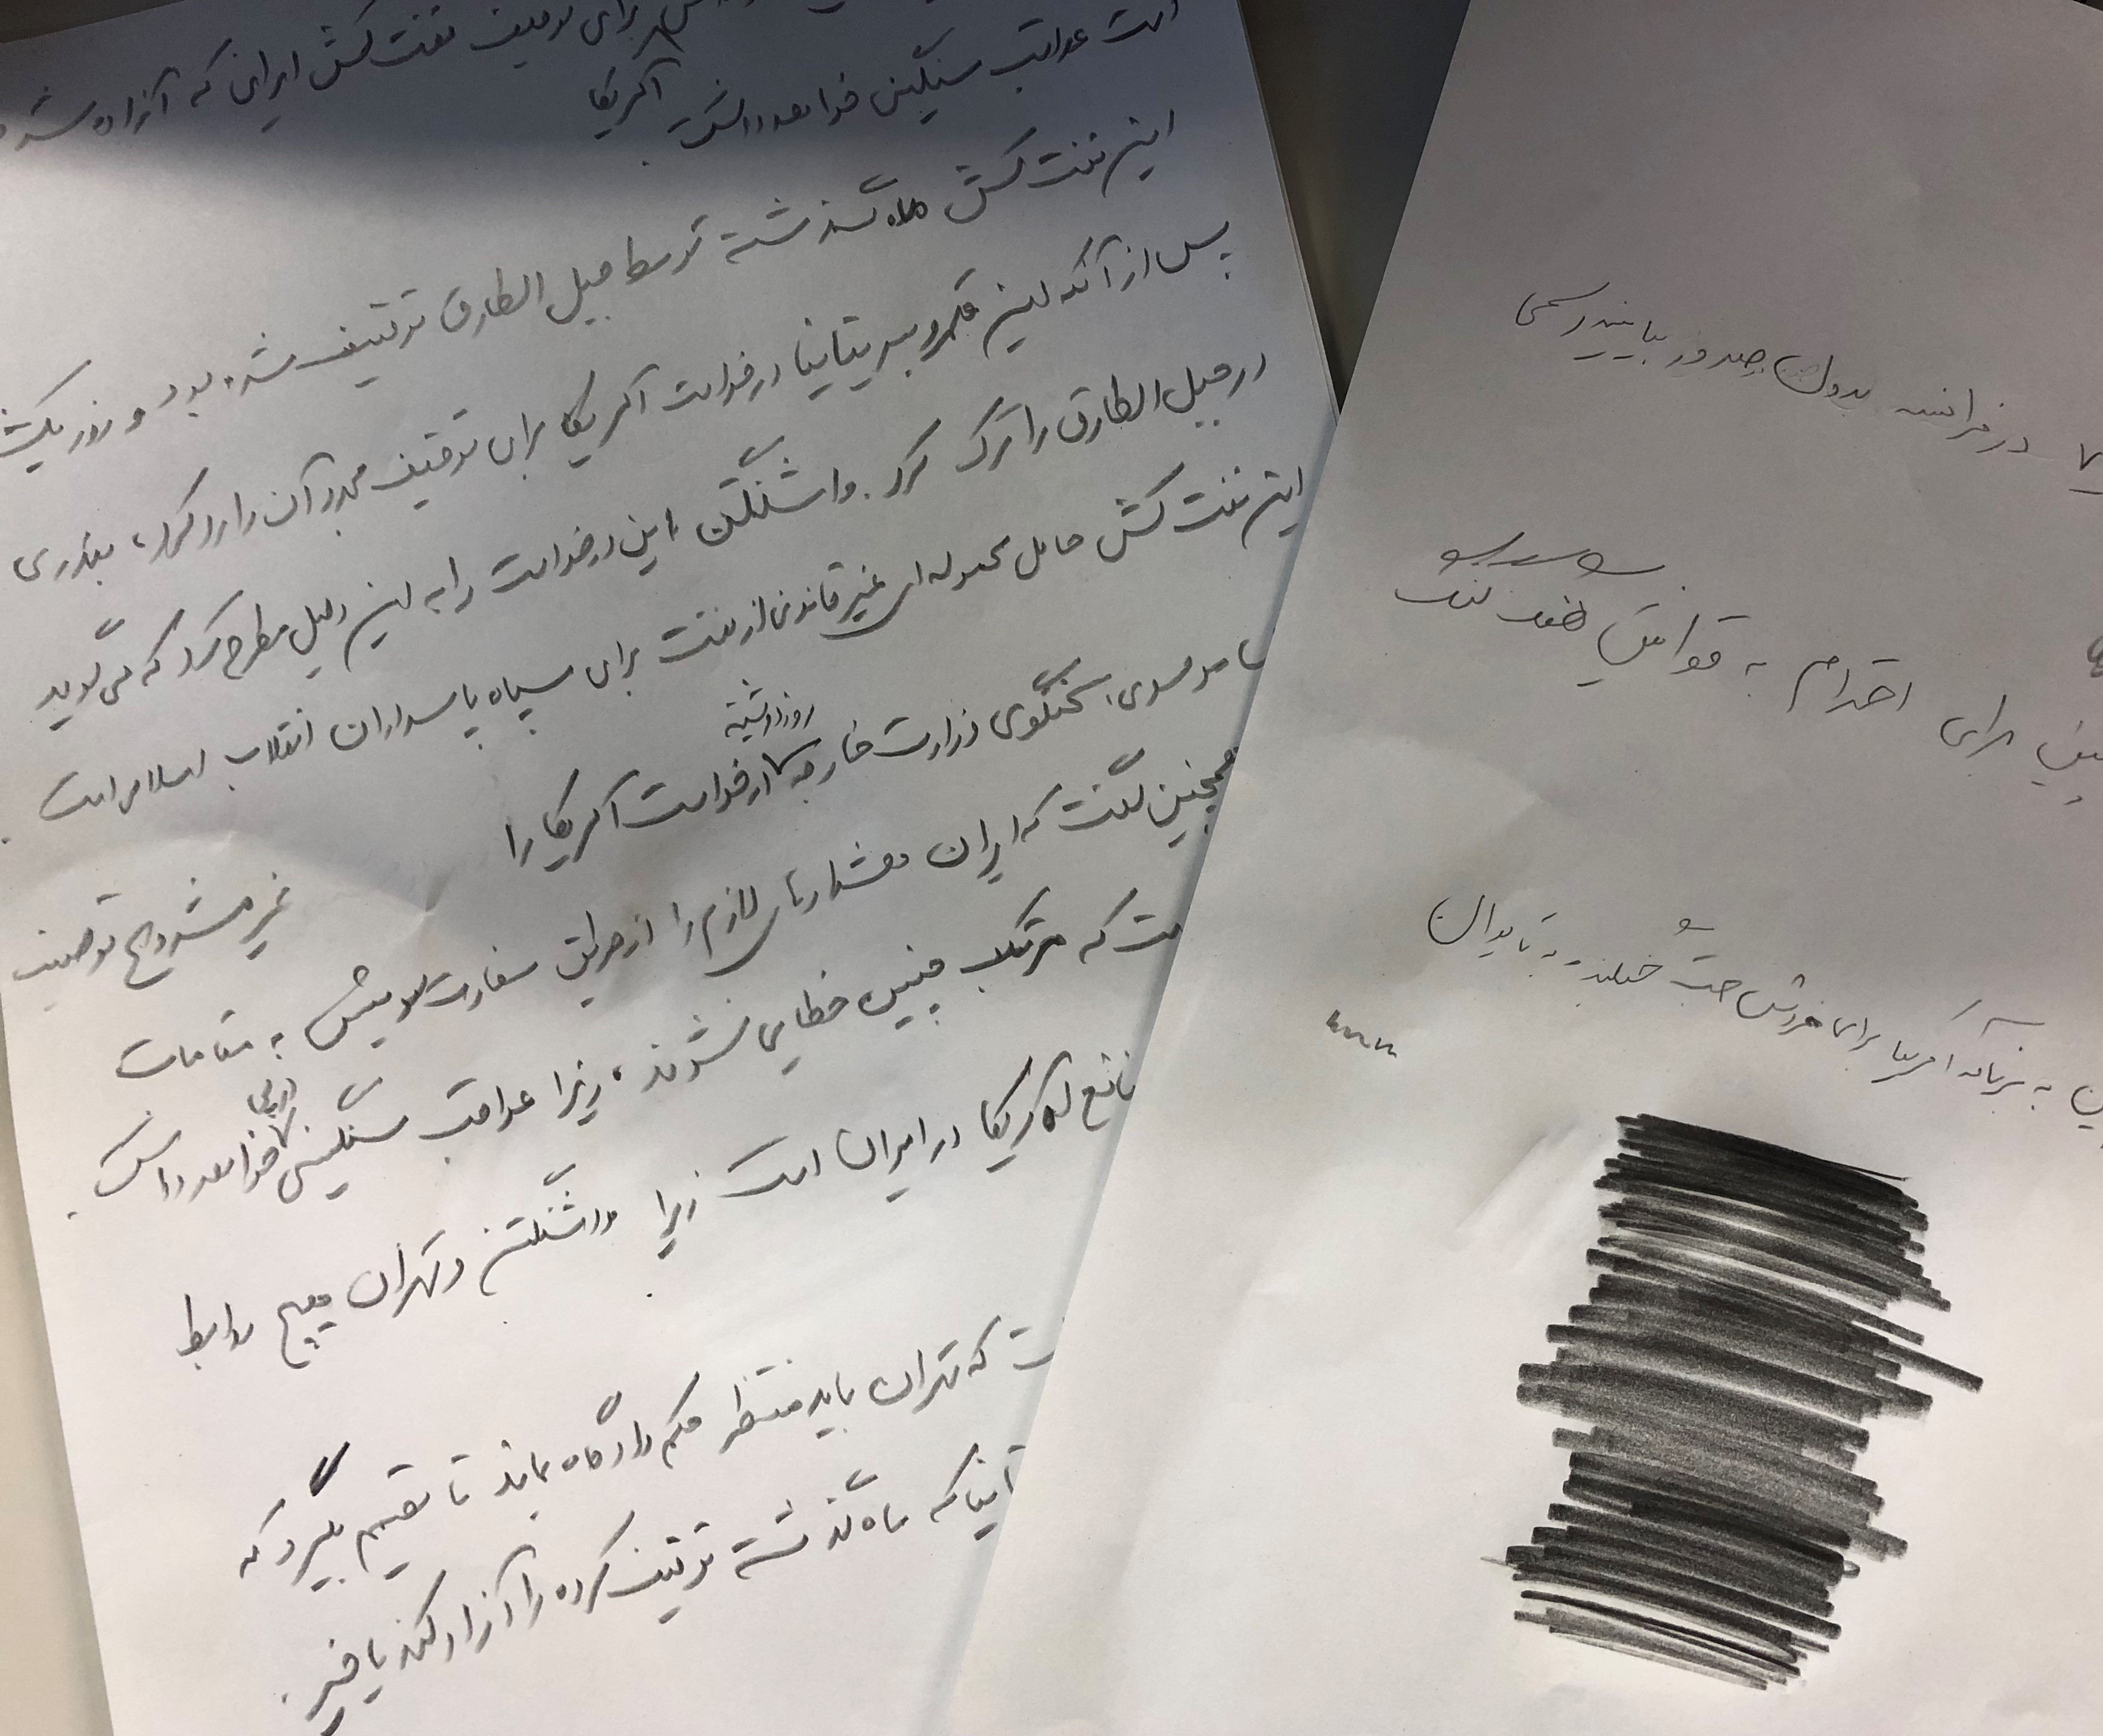 برای توقیف نفت کش ایرانی که آزاد شد
آمریکا
است عواقب سنگینی خواهد داشت.
این نفت کش ماه گذشته توسط جبل الطارق توقیف شده بود و روز یکش
پس از آنکه این قلمرو بریتانیا درخواست آمریکا برای توقیف مجدد آن را رد کرد، بندری
در جبل الطارق را ترک کرد. واشنگتن این درخواست را به این دلیل مطرح کرد که می گوید
این نفت کش حامل محموله ای غیر قانونی از نفت برای سپاه پاسداران انقلاب اسلامی است.
موسوی، سخنگوی وزارت خارجه روز دوشنبه درخواست آمریکا را غیر مشروع توصیف
همچنین گفت که ایران هشدارهای لازم را از طریق سفارت سوئیس به مقامات
ست که مرتکب چنین خطایی نشوند، زیرا عواقب سنگینی در پی خواهد داشت.
منافع آمریکا در ایران است زیرا واشنگتن و تهران هیچ روابط
ت که تهران باید منتظر حکم دادگاه بماند تا تصمیم بگیرد که
تانیا که ماه گذشته توقیف کرده را آزاد کند یا خیر.
در فرانسه بدون صدور بیانیه رسمی
برای احترام به قوانین
به برنامه آمریکا برای فروش جت جنگنده به تایوان